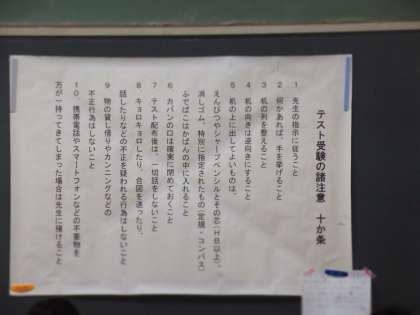 テスト受験の諸注意 十か条
1 先生の指示に従うこと
2 何かあれば、手を挙げること
3 机の列を整えること
4 机の向きは逆向きにすること
5 机の上に出してよいものは、
えんぴつやシャープペンシルとその芯(HB以上)、
消しゴム、特別に指定されたもの(定規・コンパス)
ふでばこはかばんの中に入れること
6 カバンの口は確実に閉めておくこと
7 テスト配布後は、一切話をしないこと
8 キョロキョロしたり、合図を送ったり、
話したりなどの不正を疑われる行為はしないこと
9 物の貸し借りやカンニングなどの
不正行為はしないこと
10 携帯電話やスマートフォンなどの不要物を
万が一持ってきてしまった場合は先生に預けること